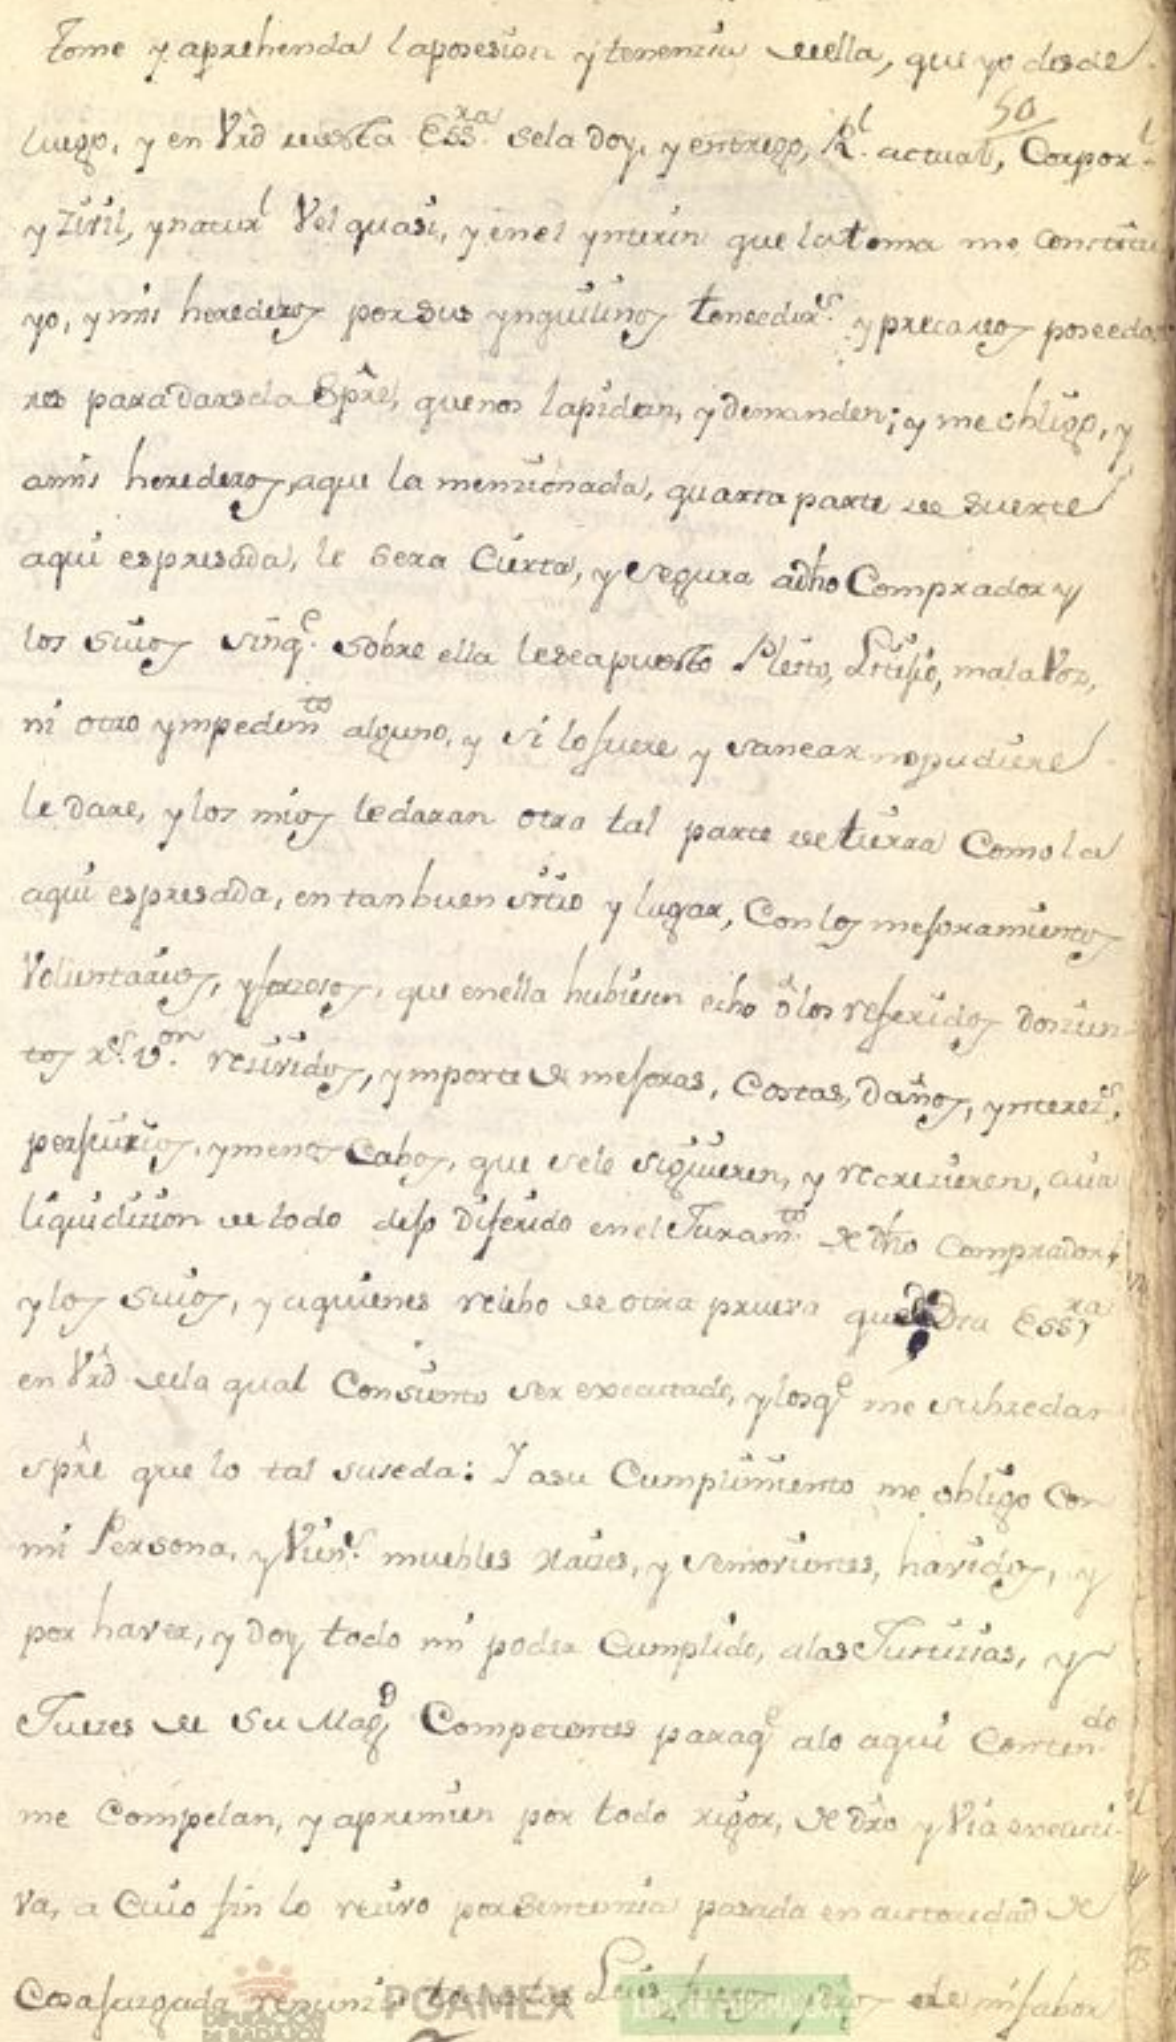 tome y aprehenda laposesion ytenenzia deella, que yo desde
50
luego, y en Vrd deesta Essra. sela Doy, y entrego, Rl. actual, Corporl.
y Zivil, ynaturl Vel quasi, y enel ynterin que latoma me Constitu
yo, ymis herederos por sus ynquilinos tenedors. yprecareos poseedo
res para Darsela Spre, quenos lapidan, yDemanden; y me obligo, y
amis herederos, aque la menzionada, quarta parte de Suerte
aqui espresada, le Sera Cierta, y segura adho Comprador y
los Suios sinqe. sobre ella leseapuesto Pleito, Litijio, mala Voz,
ni otro ympedimto alguno, y si lofuere y sanear nopudiere
le Dare, y los mios ledaran otra tal parte detierra Como la
aqui espresada, en tanbuen sitio y lugar, Con los mejoramientos
Voluntarios, yforzosos, que enella hubiesen echo o los referidos Doszien
tos rs. Von. rezividos, ymporte de mejoras, Costas, Daños, ynterezs,
perjuizios, ymenos Cabos, que sele siguieren, y recrezieren, cuia
liquidizion de todo dejo Diferido enel Juramto. de dho Comprador,
y los Suios, y aquienes relebo de otra prueva que Dra Essra
en Vrd dela qual Consiento ser executado, ylosqe me subzedan
spre que lo tal suseda: Y asu Cumplimiento me obligo Con
mi Persona, yViens. muebles raizes, y semovientes, havidos, y
por haver, y Doy todo mi poder Cumplido, alas Justizias, y
Juezes de Su Magd Competentes paraqe alo aqui Contendo
me Compelan, y apremien por todo rigor, de Dro y Via executi-
va, a Cuio fin lo rezivo por Sentenzia pasada en autoridad de
Cosa juzgada renunzio todas las Leies fueros dros de mi fabor
DIPUTACIÓN DE BADAJOZ PGAMEX